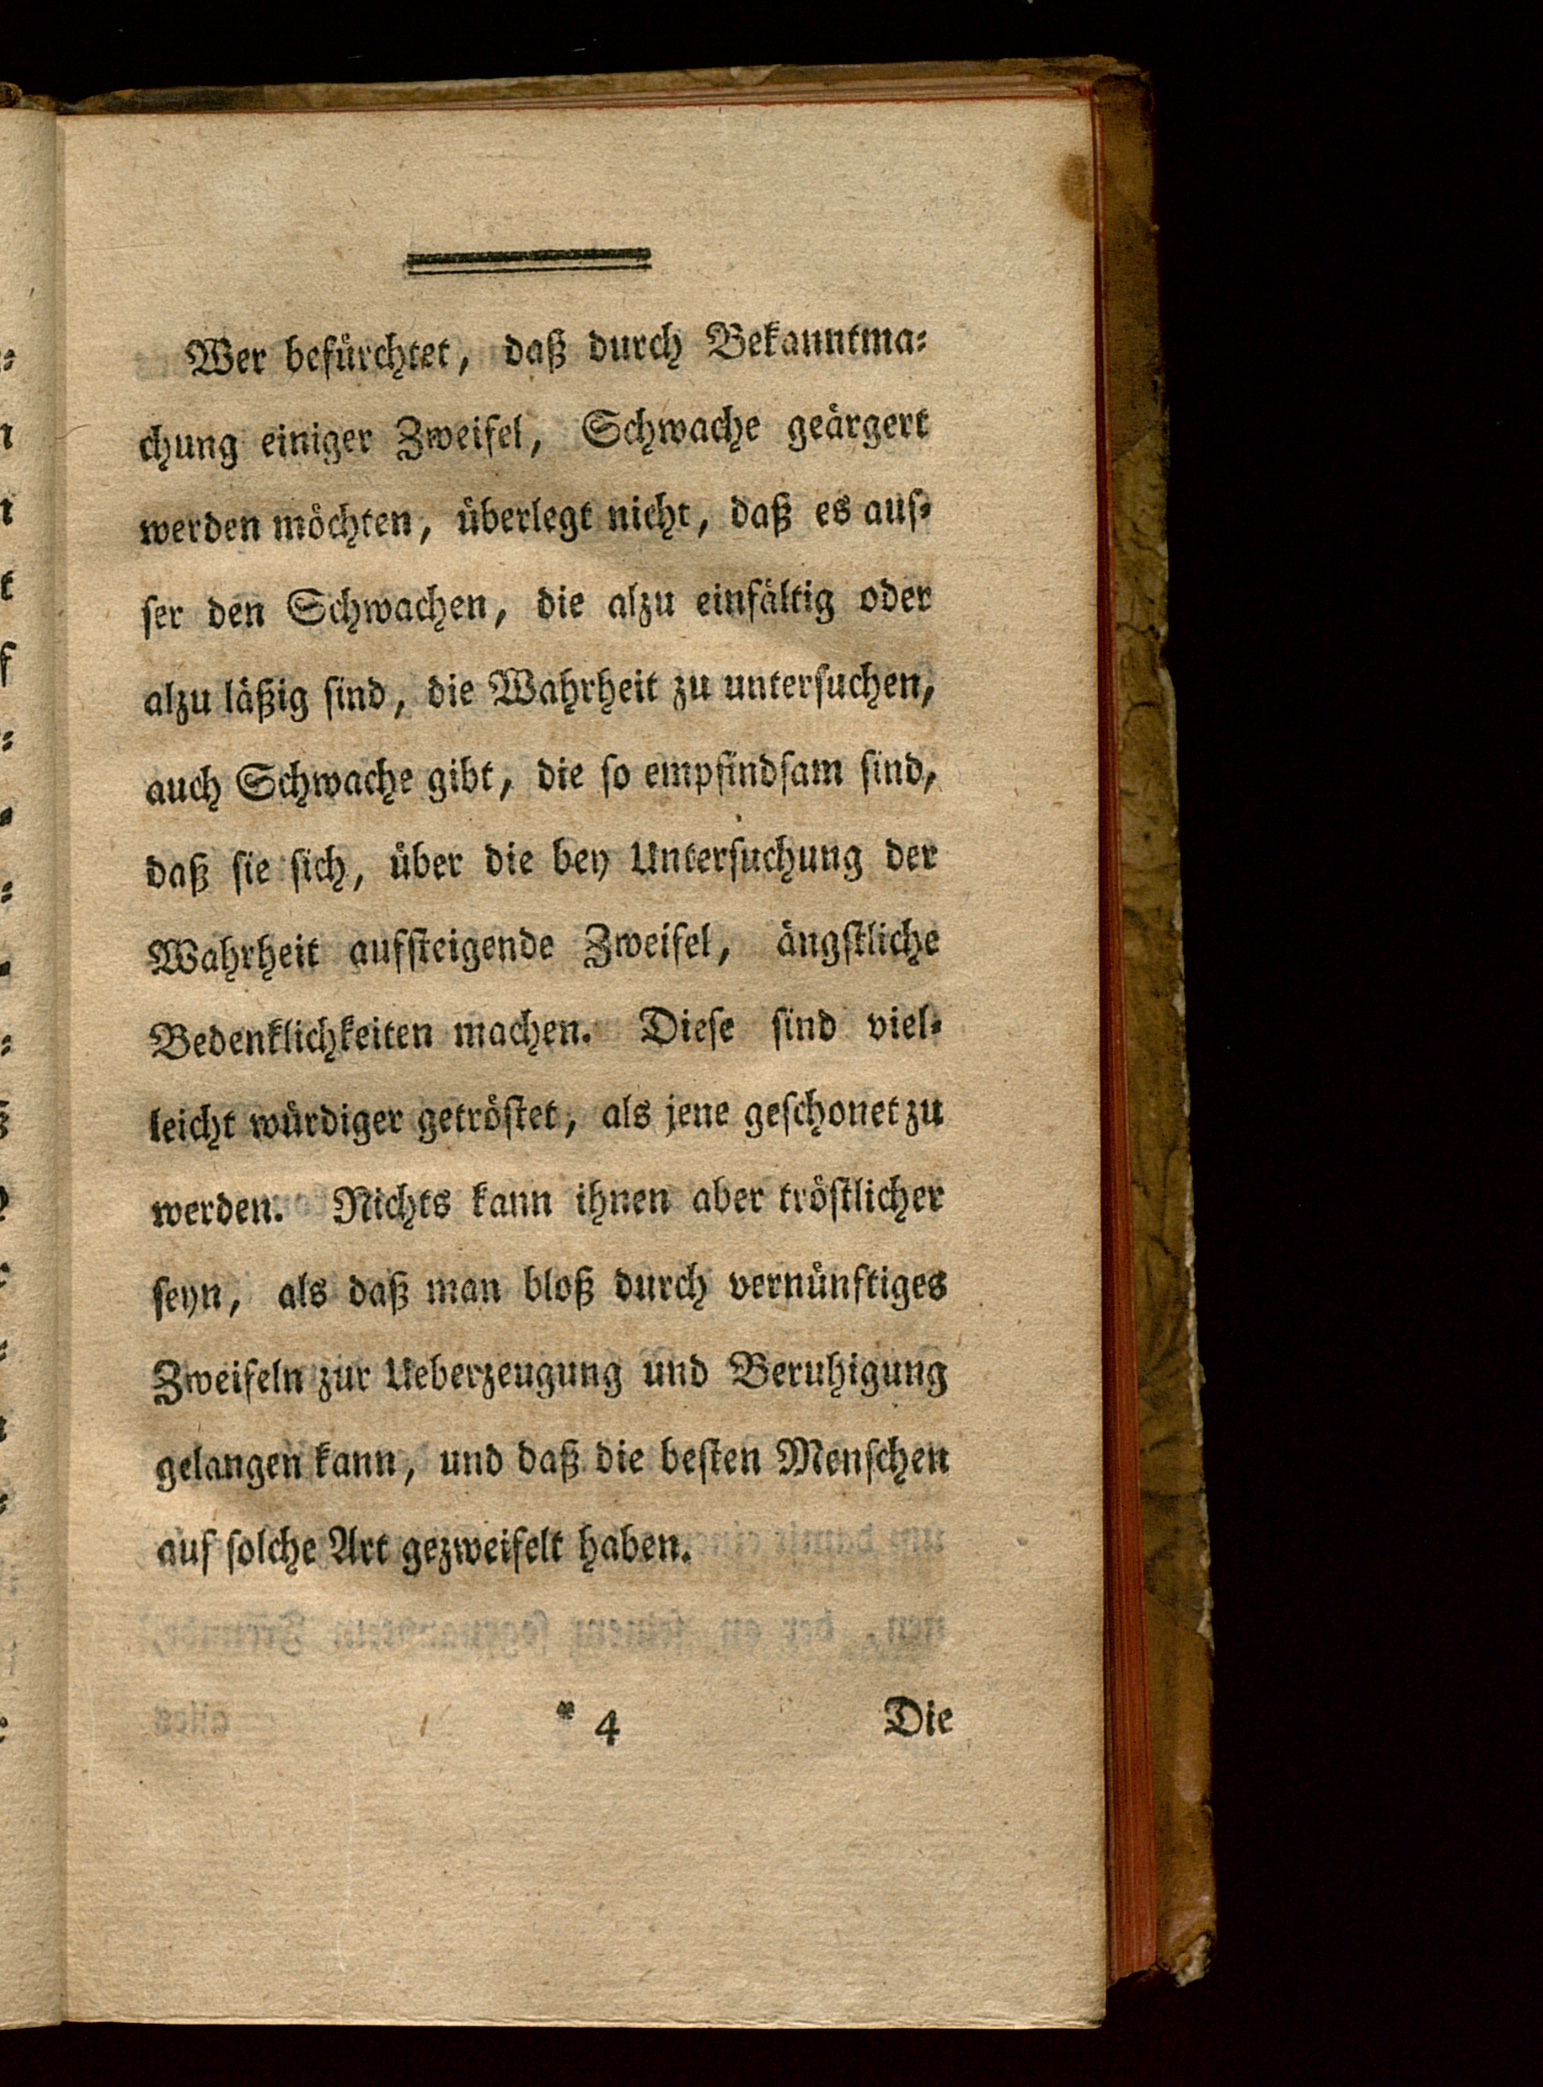 Wer befürchtet, daß durch Bekanntma⸗
chung einiger Zweifel, Schwache geärgert
werden möchten, überlegt nicht, daß es auſ⸗
ſer den Schwachen, die alzu einfältig oder
alzu läßig ſind, die Wahrheit zu unterſuchen,
auch Schwache gibt, die ſo empfindſam ſind,
daß ſie ſich, über die bey Unterſuchung der
Wahrheit aufſteigende Zweifel, ängſtliche
Bedenklichkeiten machen. Dieſe ſind viel⸗
leicht würdiger getröſtet, als jene geſchonet zu
werden. Nichts kann ihnen aber tröſtlicher
ſeyn, als daß man bloß durch vernünftiges
Zweifeln zur Ueberzeugung und Beruhigung
gelangen kann, und daß die beſten Menſchen
auf ſolche Art gezweifelt haben.
* 4 Die